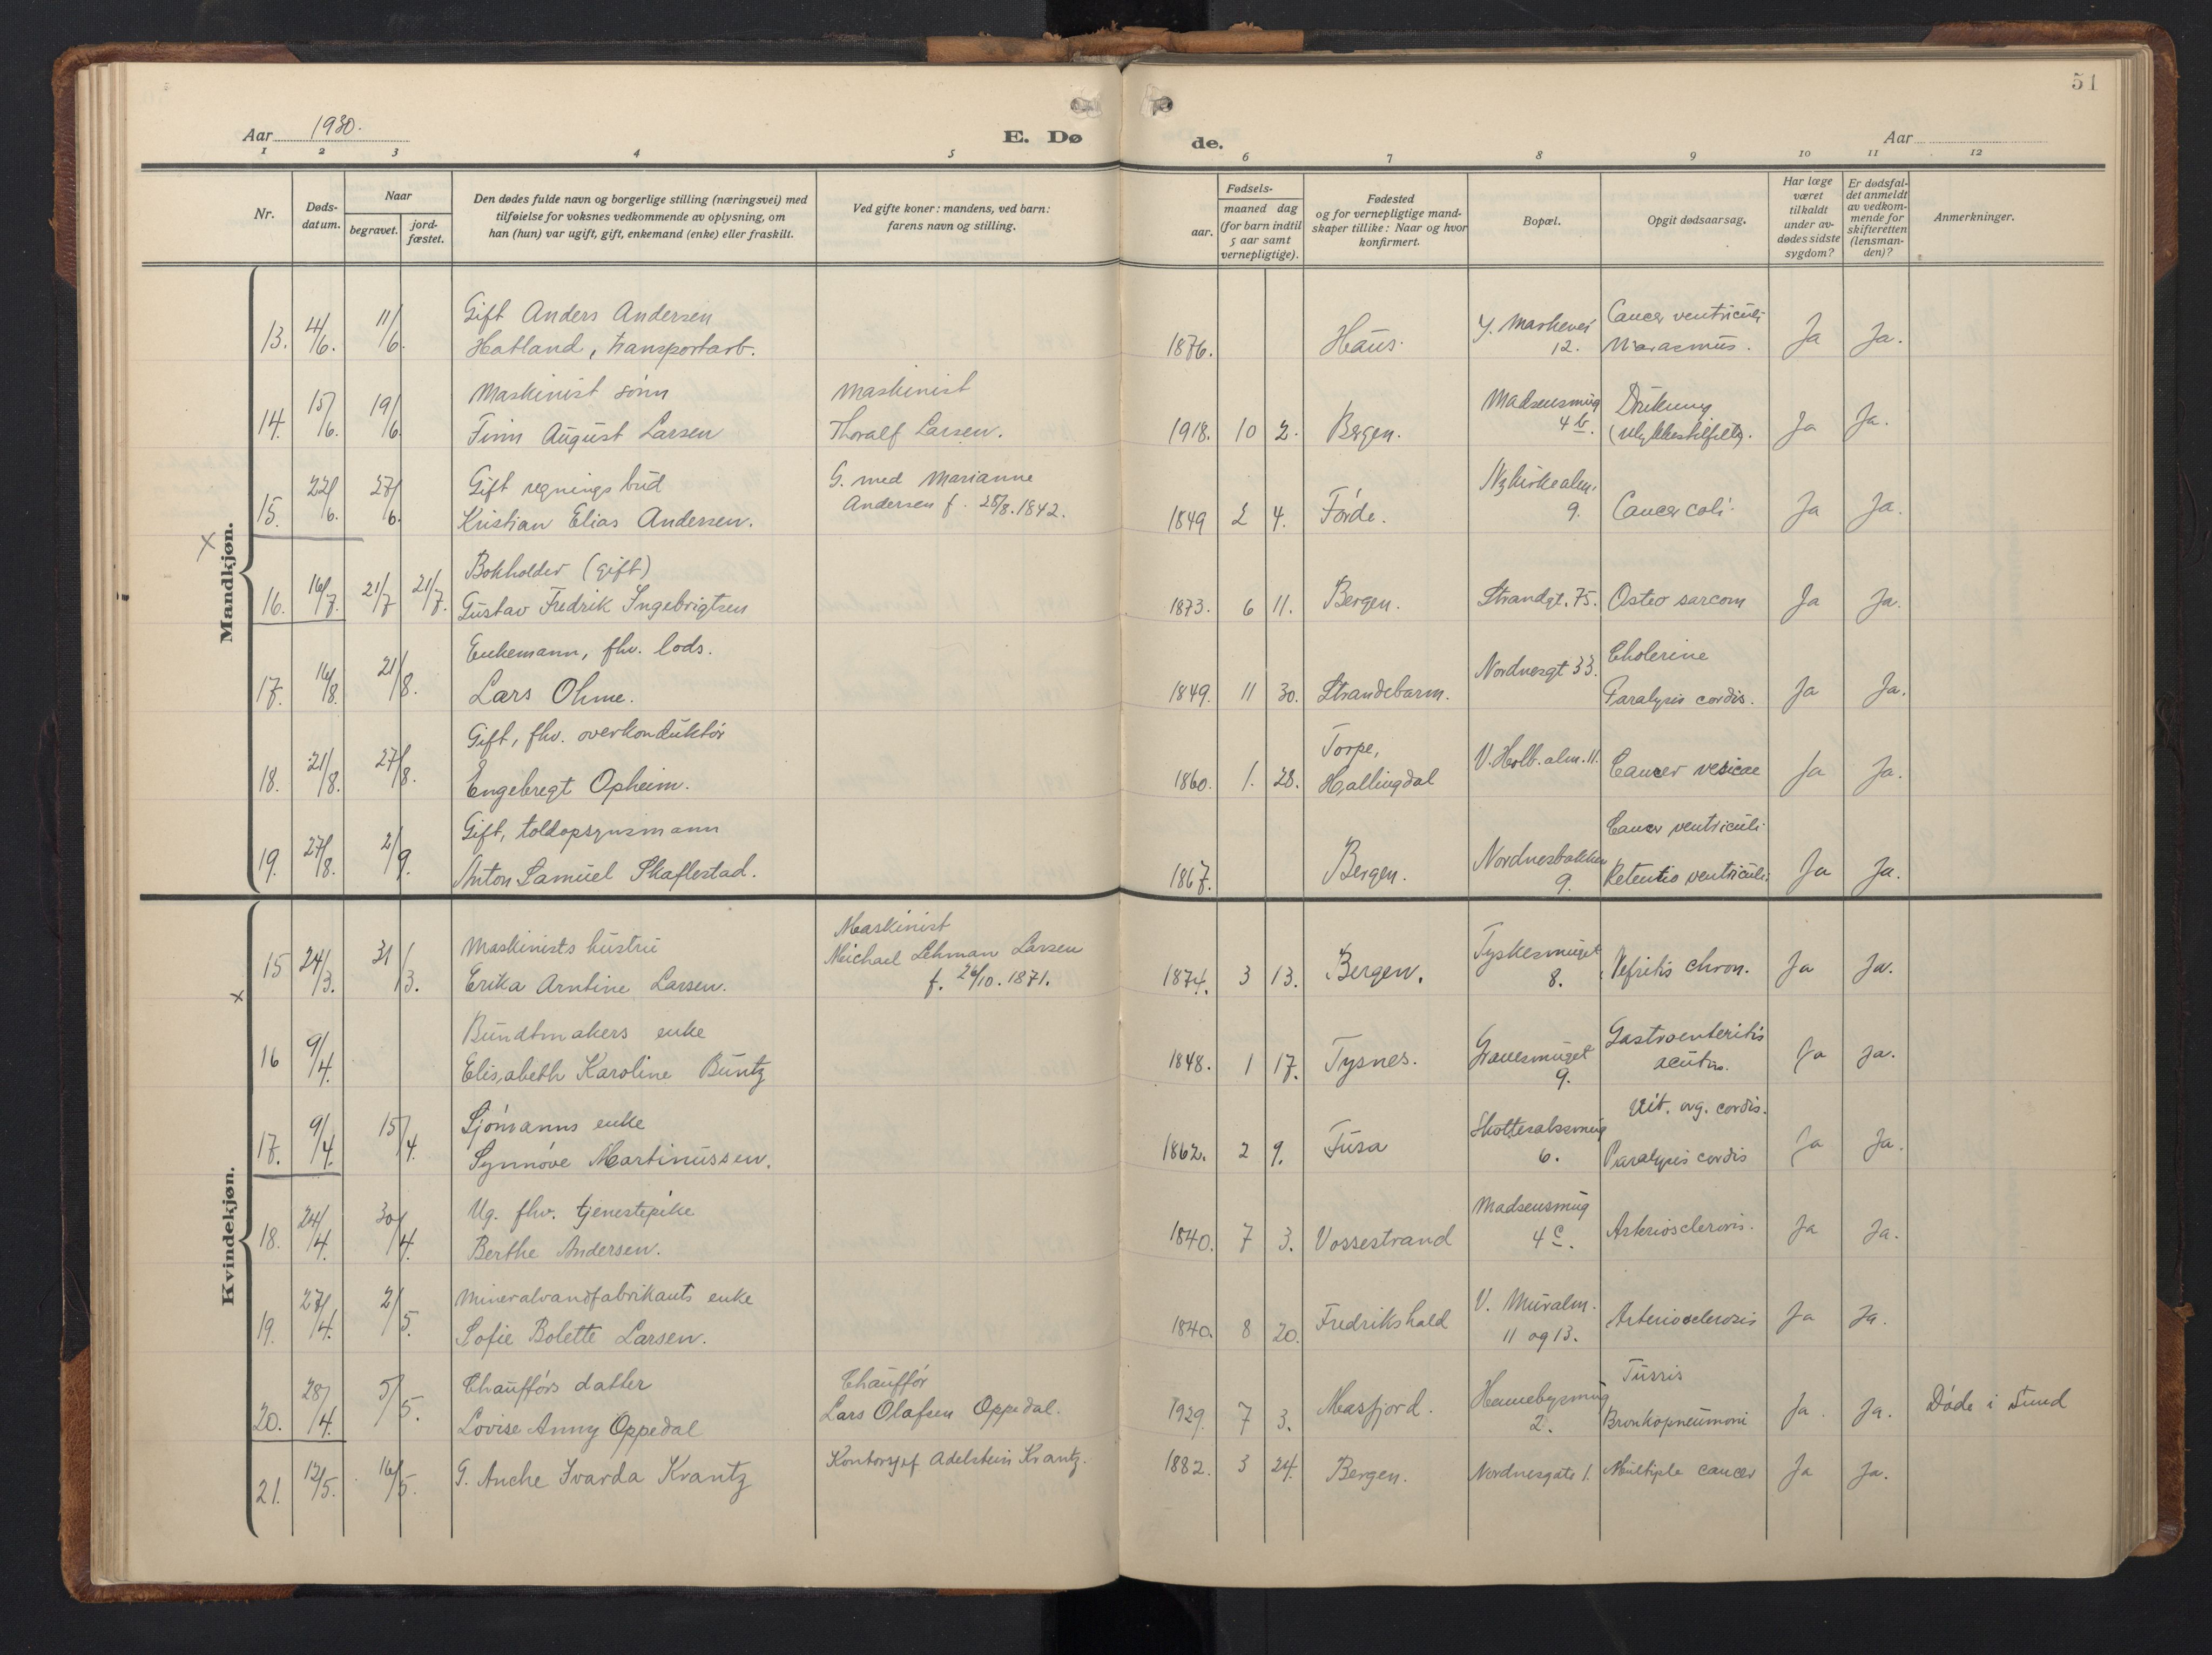 51
Aar 1930.
E. Dø
de.
Aar
1 2 3 4 5 6 7 8 9 10 11 12
Nr.
Døds-
datum.
Naar
begravet.
jord-
fæstet.
Den dødes fulde navn og borgerlige stilling (næringsvei) med
tilføielse for voksnes vedkommende av oplysning, om
han (hun) var ugift, gift, enkemand (enke) eller fraskilt.
Ved gifte koner: mandens, ved barn:
farens navn og stilling.
aar.
Fødsels-
maaned dag
(for barn indtil
5 aar samt
vernepligtige).
Fødested
og for vernepligtige mand-
skaper tillike: Naar og hvor
konfirmert.
Bopæl.
Opgit dødsaarsag.
Har læge
været
tilkaldt
under av-
dødes sidste
sygdom?
Er dødsfal-
det anmeldt
av vedkom-
mende for
skifteretten
(lensman-
den)?
Anmerkninger.
Mandkjøn.
13. 4/6. 11/6. Gift Anders Andersen
Hatland, transportarb.
1876. Haus. Y. Markevei
12. Cancer ventriculi
Marasmus. Ja Ja.
14. 15/6. 19/6 Maskinist sønn
Finn August Larsen
Maskinist
Thoralf Larsen.
1918. 10 2. Bergen. Madsensmug
4 b. Drukning
(ulykkestilfelle). Ja Ja.
15. 22/6. 27/6. Gift regningsbud
Kristian Elias Andersen.
G. med Marianne
Andersen f. 28/8. 1842.
1849 2 4. Førde. Nykirkealm.
9. Cancer coli. Ja Ja.
16. 16/7. 21/7 21/7. Bokholder (gift)
Gustav Fredrik Ingebrigtsen
1873. 6 11. Bergen. Strandgt. 75. Osteo sarcom Ja Ja.
17. 16/8. 21/8. Enkemann, fhv. lods.
Lars Ohme.
1849. 11 30. Strandebarm. Nordnesgt 33. Cholerine
Paralysis cordis. Ja Ja.
18. 21/8. 27/8. Gift, fhv. overkonduktør
Engebregt Opheim.
1860. 1. 28. Torpe,
Hallingdal V. Holb. alm. 11. Cancer vesicae Ja Ja.
19. 27/8. 2/9. Gift, toldopsynsmann
Anton Samuel Skaflestad.
1867. Bergen. Nordnesbakken
9. Cancer ventriculi
Retentio ventriculi Ja Ja.
Kvindekjøn.
15 24/3. 31/3. Maskinists hustru
Erika Arntine Larsen.
Maskinist
Michael Lehman Larsen
f. 26/10. 1871.
1874. 3 13. Bergen. Tyskesmuget
8. Nefritis chron. Ja Ja.
16 9/4. Bundtmakers enke
Elisabeth Karoline Buntz
1848. 1 17. Tysnes. Gravesmuget
9. Gastroenteritis
acuta. Ja Ja.
17. 9/4. 15/4. Sjømanns enke
Synnøve Martinussen.
1862. 2 9. Fusa
6. Vit. org. cordis.
Paralysis cordis Ja Ja.
18. 24/4. 30/4. Ug. fhv. tjenestepike
Berthe Andersen.
1840. 7 3. Vossestrand Madsensmug
4 c. Arteriosclerosis. Ja Ja.
19. 27/4. 2/5. Mineralvandfabrikants enke
Sofie Bolette Larsen.
1840. 8 20. Fredrikshald V. Muralm.
11 og 13. Arteriosclerosis Ja Ja.
20. 28/4. 5/5. Chaufførs datter
Lovise Anny Oppedal
Chauffør
Lars Olafsen Oppedal.
1929. 7 3. Masfjord. Hennebysmug
2. Tussis
Bronkopneumoni Ja. Ja. Døde i Sund
21. 12/5. 16/5. G. Anche Ivarda Krantz
Kontorsjef Adelstein Krantz.
1882. 3 24. Bergen. Nordnesgate 1. Multiple cancer Ja Ja.